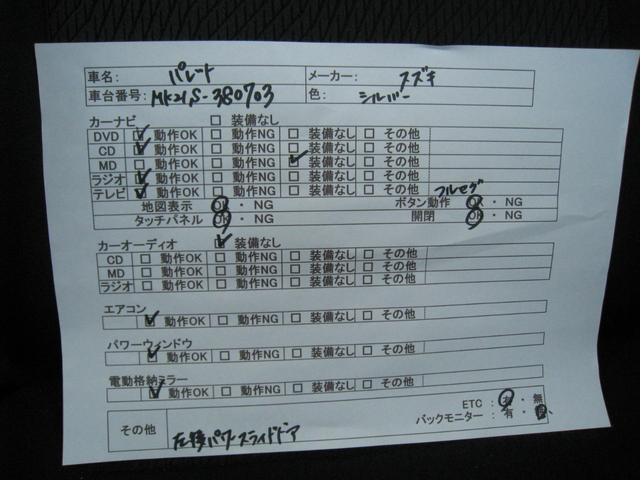 車名: パレット メーカー: スズキ
車台番号: MK21S-380703 色: シルバー
カーナビ □ 装備なし
DVD ☑ 動作OK □ 動作NG □ 装備なし □ その他
CD ☑ 動作OK □ 動作NG □ 装備なし □ その他
MD □ 動作OK □ 動作NG ☑ 装備なし □ その他
ラジオ ☑ 動作OK □ 動作NG □ 装備なし □ その他
テレビ ☑ 動作OK □ 動作NG □ 装備なし □ その他 フルセグ
地図表示 OK ・ NG ボタン動作 OK ・ NG
タッチパネル OK ・ NG 開閉 OK ・ NG
カーオーディオ ☑ 装備なし
CD □ 動作OK □ 動作NG □ 装備なし □ その他
MD □ 動作OK □ 動作NG □ 装備なし □ その他
ラジオ □ 動作OK □ 動作NG □ 装備なし □ その他
エアコン
☑ 動作OK □ 動作NG □ 装備なし □ その他
パワーウィンドウ
☑ 動作OK □ 動作NG □ 装備なし □ その他
電動格納ミラー
☑ 動作OK □ 動作NG □ 装備なし □ その他
ETC : 有 ・ 無
バックモニター : 有 ・ 無
その他 左後パワースライドドア